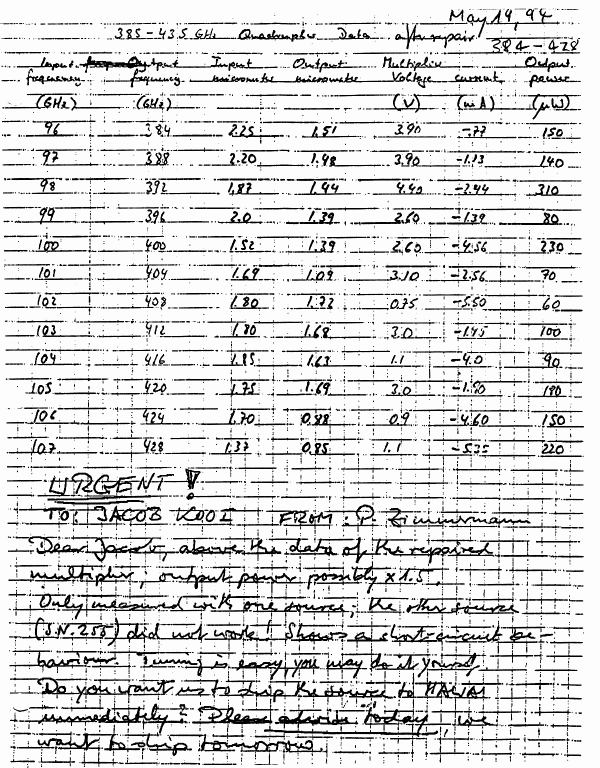 May 19, 94
385-435 GHz Quadrupler Data after repair 384-428
Input Output Input Output Multiplier Output
frequency frequency micrometer micrometer Voltage current power
(GHz) (GHz) (V) (mA) (µW)
96 384 2.25 1.51 3.90 -.77 150
97 388 2.20 1.48 3.90 -1.13 140
98 392 1.87 1.44 4.40 -2.44 310
99 396 2.0 1.39 2.60 -1.39 80
100 400 1.52 1.39 2.60 -4.56 230
101 404 1.69 1.09 3.10 -2.56 70
102 408 1.80 1.72 0.75 -5.50 60
103 412 1.80 1.68 3.0 -1.45 100
104 416 1.85 1.63 1.1 -4.0 90
105 420 1.75 1.69 3.0 -1.90 180
106 424 1.70 0.88 0.9 -4.60 150
107 428 1.37 0.85 1.1 -5.35 220
URGENT!
TO: JACOB KOOI FROM: P. Zimmermann
Dear Jacob, above the data of the repaired
multiplier, output power possibly x 1.5.
Only measured with one source, the other source
(S.N. 255) did not work! Shows a short-circuit be-
haviour. Tuning is easy, you may do it yourself.
Do you want us to ship the source to HAWAI
immediately? Please advise today, we
want to ship tomorrow.